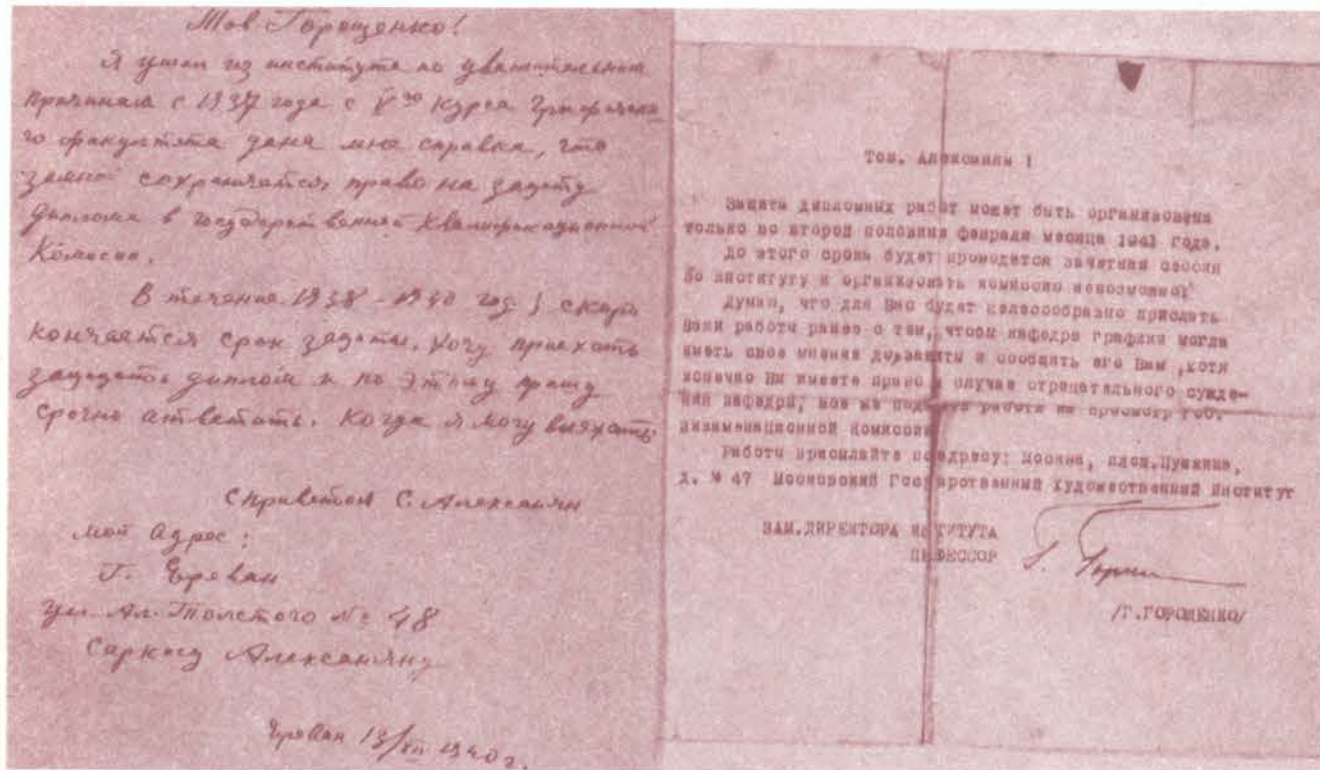 Тов Горощенко!
Я ушел из института по уважительным
причинам с 1937 года с V го курса Графическо
го факультета дана мне справка, что
замной сохраняется право на защиту
Диплома в государственной Квалификационной
Комисии.
В течение 1938-1940 год скоро
кончается срок защиты. Хочу приехать
защищать диплом и по этому прошу
срочно атветать. Когда я могу выехать.
С приветом С. Алексанян
мой адрес:
Г. Ереван
ул. Ал. Толстого № 48
Саркису Алексаняну
Ереван 13/XII 1940 г.
Тов. Алексанян !
Защита дипломных работ может быть организована
только во второй половине февраля месяца 1941 года.
До этого срока будет проводется зачетная сессия
по институту и организовать комиссию невозможно.
Думаю, что для Вас будет целесообразно прислать
Ваши работы ранее с тем, чтобы кафедра графики могла
иметь свое мнение до защиты и сообщить его Вам, хотя
конечно Вы имеете право в случае отрицательного сужде-
ния кафедры, все же работы на просмотр Гос.
экзаменационной Комиссии
Работы присылайте по адресу: Москва, плош. Пушкина,
д. № 47 Московский Государственный Художественный Институт
ЗАМ.ДИРЕКТОРА ИНСТИТУТА
ПРОФЕССОР
/Г.ГОРОЩЕНКО/